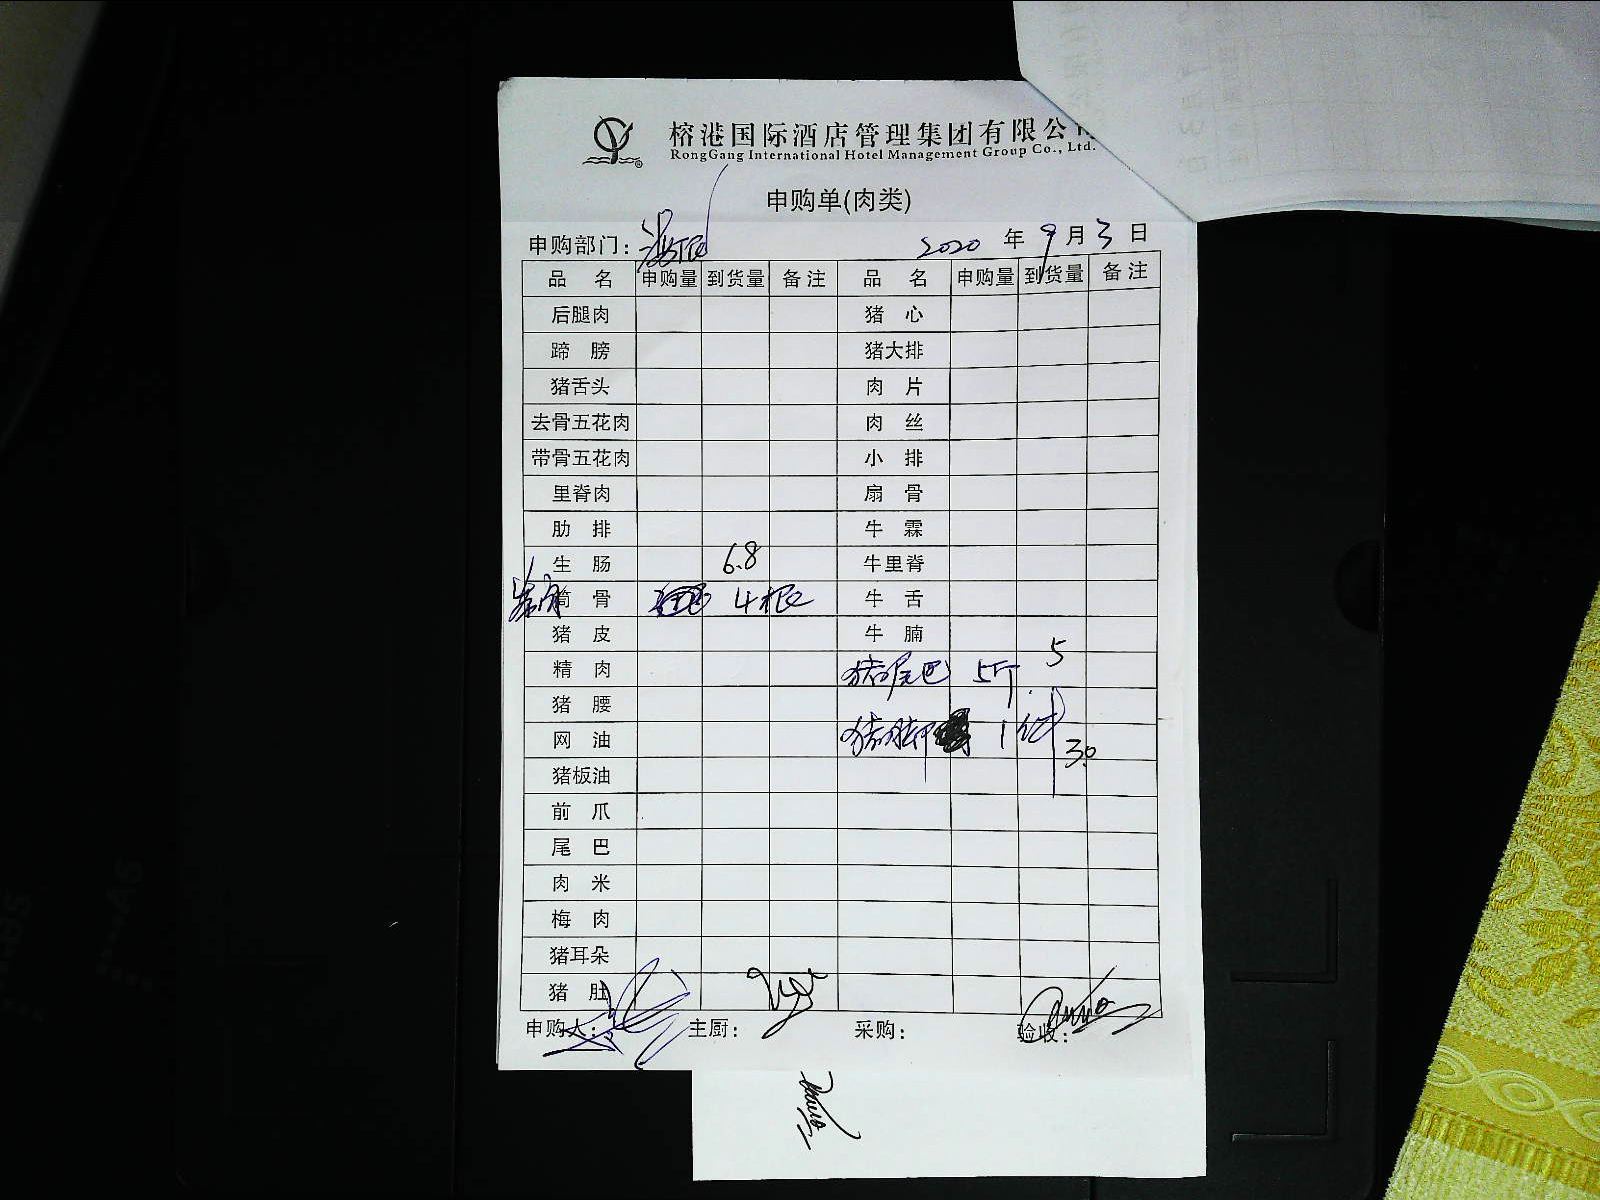 榕港国际酒店管理集团有限公司
RongGang International Hotel Management Group Co., Ltd.
申购单(肉类)
申购部门：
2020 年 9 月 3 日
品 名 申购量 到货量 备注 品 名 申购量 到货量 备注
后腿肉 猪 心
蹄 膀 猪大排
猪舌头 肉 片
去骨五花肉 肉 丝
带骨五花肉 小 排
里脊肉 扇 骨
肋 排 牛 霖
生 肠 6.8 牛里脊
筒 骨 4根 牛 舌
猪 皮 牛 腩
精 肉 猪尾巴 5斤 5
猪 腰
网 油 猪脚 1 30
猪板油
前 爪
尾 巴
肉 米
梅 肉
猪耳朵
猪 肚
申购人： 主厨： 采购： 验收：